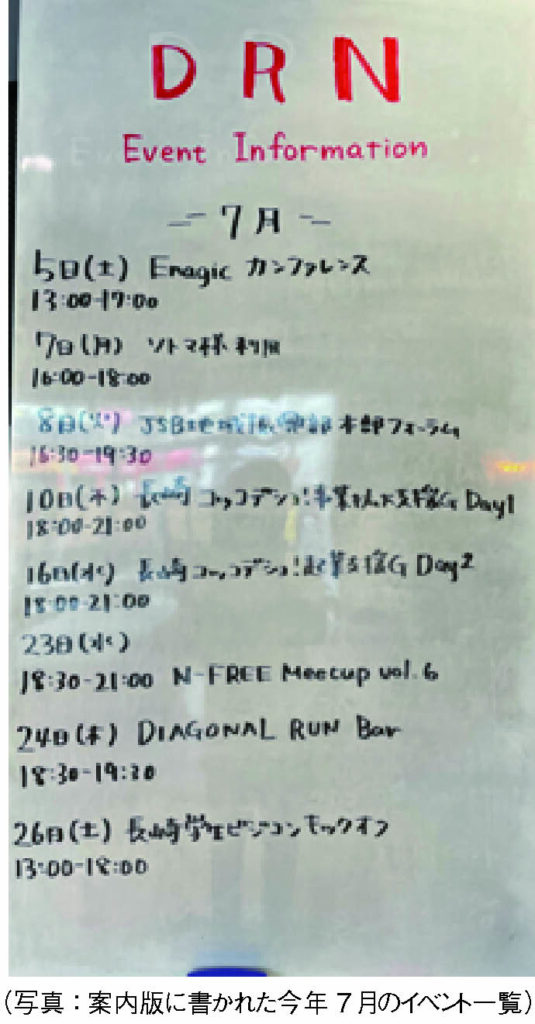 DRN
Event Information
7月
5日(土) Enagic カンファレンス
13:00-17:00
7日(月) ソトマ様 利用
16:00-18:00
8日(火) JSB 本部フォーラム
16:30-19:30
10日(木) 長崎コッコデショ! Day1
18:00-21:00
16日(水) 長崎コッコデショ!起業支援G Day2
18:00-21:00
23日(水)
18:30-21:00 N-FREE Meetup vol.6
24日(木) DIAGONAL RUN Bar
18:30-19:30
26日(土) 長崎学生ビジコンキックオフ
13:00-18:00
(写真：案内版に書かれた今年7月のイベント一覧)